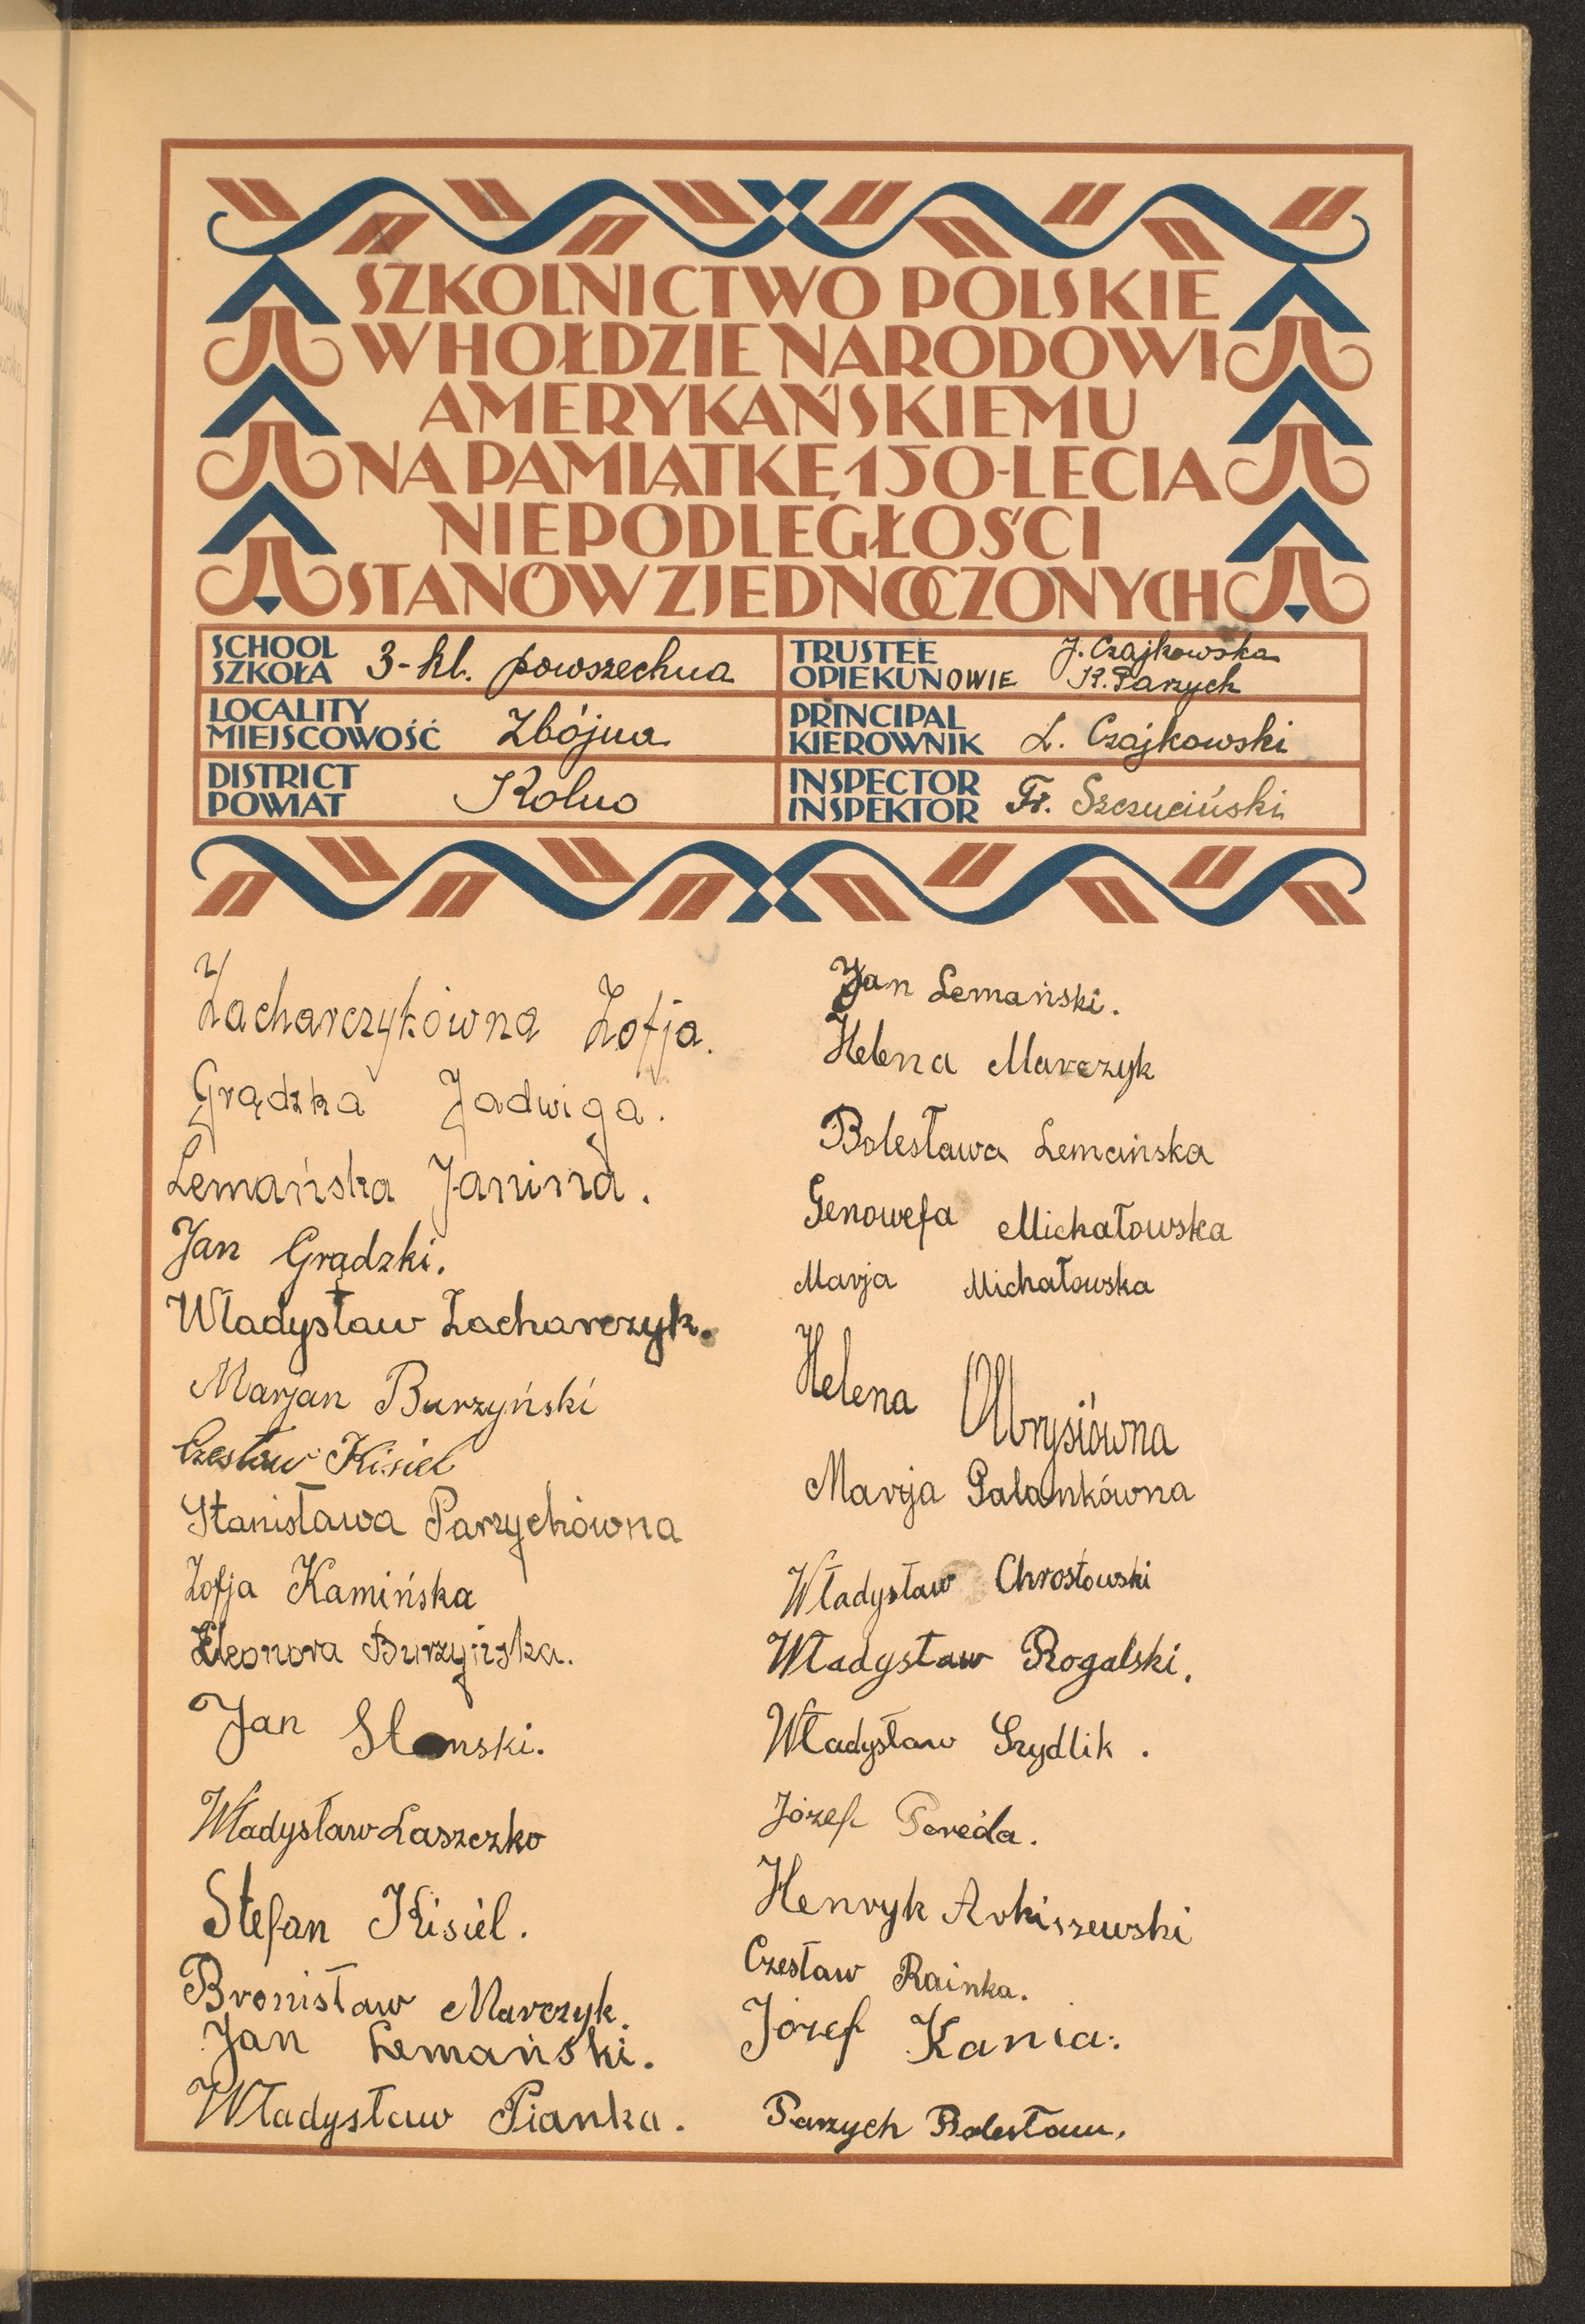 SZKOLNICTWO POLSKIE
W HOŁDZIE NARODOWI
AMERYKAŃSKIEMU
NA PAMIĄTKĘ 150-LECIA
NIEPODLEGŁOŚCI
STANÓW ZJEDNOCZONYCH
SCHOOL
SZKOŁA 3-kl. powszechna
TRUSTEE
OPIEKUNOWIE J. Czajkowska
K. Parzych
LOCALITY
MIEJSCOWOŚĆ Zbójna
PRINCIPAL
KIEROWNIK L. Czajkowski
DISTRICT
POWIAT Kolno
INSPECTOR
INSPEKTOR Fr. Szczuciński
Zacharczykówna Zofja.
Grądzka Jadwiga.
Lemańska Janina.
Jan Grądzki.
Władysław Zacharczyk.
Marjan Burzyński
Czesław Kisiel
Stanisława Parzychówna
Zofja Kamińska
Eleonora Burzyńska.
Jan
Władysław Laszczko
Stefan Kisiel.
Bronisław Marczyk.
Jan Lemański.
Władysław Pianka.
Jan Lemański.
Helena Marczyk
Bolesława Lemańska
Genowefa Michałowska
Marja Michałowska
Helena Olbrysiówna
Marja Palankówna
Władysław Chrostowski
Władysław Rogalski.
Władysław Szydlik.
Józef Pereda.
Henryk Arkiszewski
Czesław Rainka.
Józef Kania.
Parzych Bolesław.